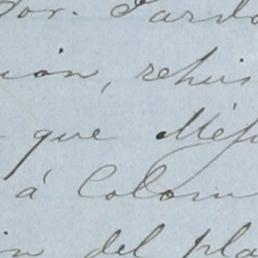 or. Pardo
ion, rehus
que Méj
á Colom
in del pla